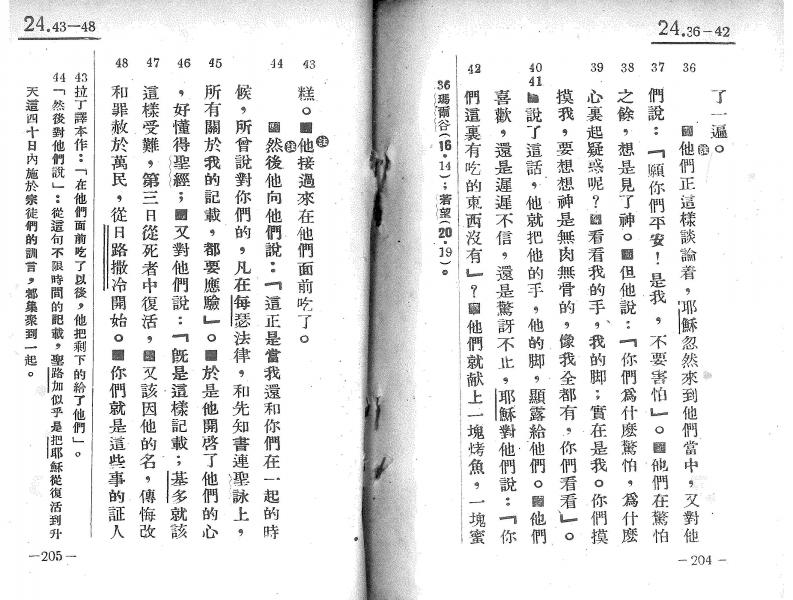 24.36-42
了一遍。
36 他們正這樣談論着，耶穌忽然來到他們當中，又對他
37 們說：「願你們平安！是我，不要害怕」。他們在驚怕
38 之餘，想是見了神。但他說：「你們爲什麽驚怕，爲什麽
39 心裏起疑惑呢？看看我的手，我的脚；實在是我。你們摸
摸我，要想想神是無肉無骨的，像我全都有，你們看看」。
40 41 說了這話，他就把他的手，他的脚，顯露給他們。他們
喜歡，還是遲遲不信，還是驚訝不止，耶穌對他們說：「你
42 們這裏有吃的東西沒有」？他們就献上一塊烤魚，一塊蜜
36瑪爾谷(16．14)；若望(20．19)。
—204—
24.43—48
43 糕。他接過來在他們面前吃了。
44 然後他向他們說：「這正是當我還和你們在一起的時
候，所曾說對你們的，凡在每瑟法律，和先知書連聖詠上，
45 所有關於我的記載，都要應驗」。於是他開啓了他們的心
46 ，好懂得聖經；又對他們說：「旣是這樣記載；基多就該
47 這樣受難，第三日從死者中復活，又該因他的名，傳悔改
48 和罪赦於萬民，從日路撒冷開始。你們就是這些事的証人
43拉丁譯本作：「在他們面前吃了以後，他把剩下的給了他們」。
44「然後對他們說」：從這句不限時間的記載，聖路加似乎是把耶穌從復活到升
天這四十日內施於宗徒們的訓言，都集聚到一起。
—205—